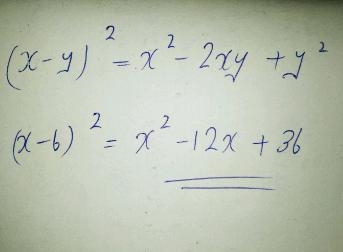 (x-y)² = x² - 2xy + y²
(x-6)² = x² - 12x + 36